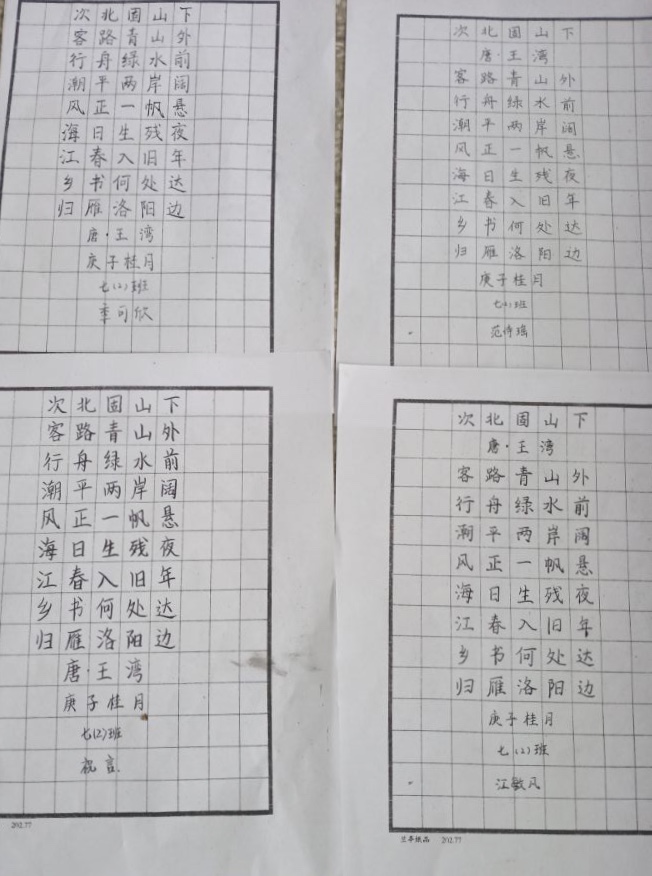 次北固山下
客路青山外
行舟绿水前
潮平两岸阔
风正一帆悬
海日生残夜
江春入旧年
乡书何处达
归雁洛阳边
唐·王湾
庚子桂月
七(2)班
季可欣
次北固山下
唐·王湾
客路青山外
行舟绿水前
潮平两岸阔
风正一帆悬
海日生残夜
江春入旧年
乡书何处达
归雁洛阳边
庚子桂月
七(2)班
范诗瑶
次北固山下
客路青山外
行舟绿水前
潮平两岸阔
风正一帆悬
海日生残夜
江春入旧年
乡书何处达
归雁洛阳边
唐·王湾
庚子桂月
七(2)班
祝言
202.77
次北固山下
唐·王湾
客路青山外
行舟绿水前
潮平两岸阔
风正一帆悬
海日生残夜
江春入旧年
乡书何处达
归雁洛阳边
庚子桂月
七(2)班
江敏凡
兰亭纸品 202.77